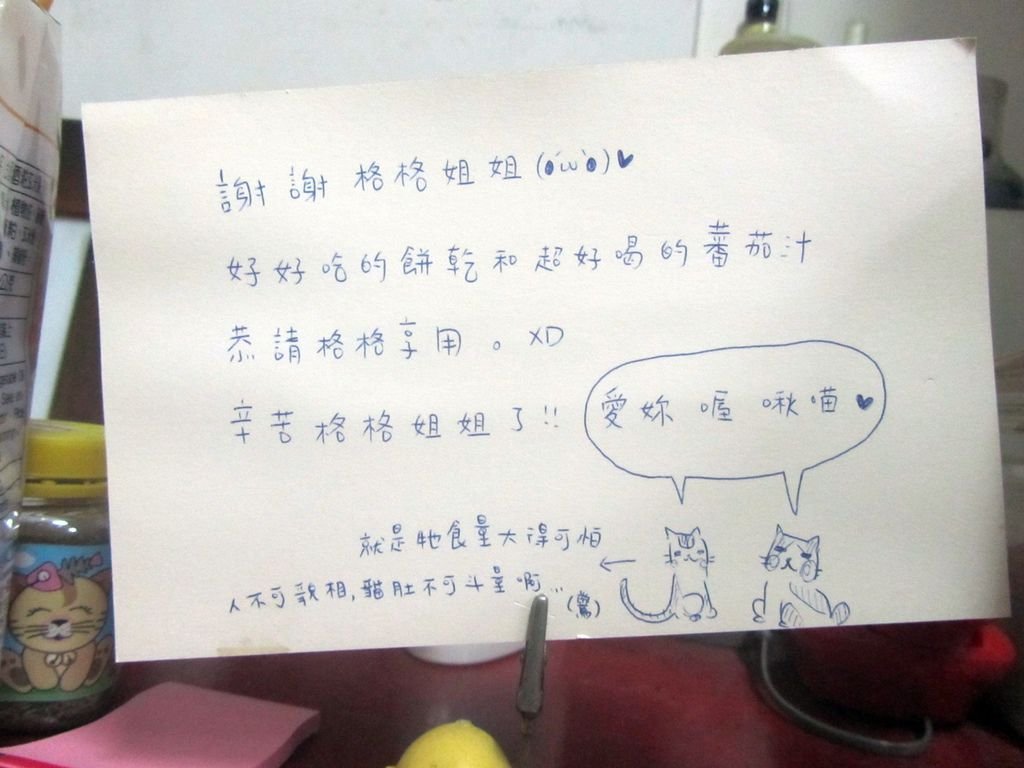 謝謝格格姐姐(●'ω'●)♥
好好吃的餅乾和超好喝的蕃茄汁
恭請格格享用。XD
辛苦格格姐姐了!!
愛妳喔 啾喵♥
就是牠食量大得可怕
人不可貌相,貓肚不可斗量啊...(驚)